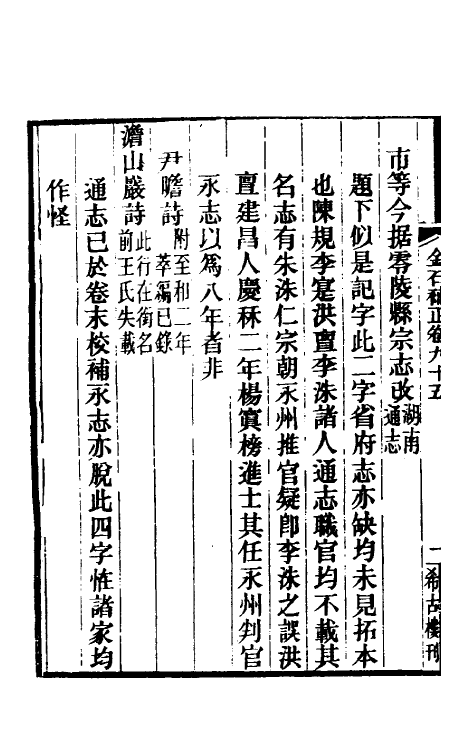 金石補正卷九十五
二希古樓刊
市等今据零陵縣宗志改湖南通志
題下似是記字此二字省府志亦缺均未見拓本
也陳規李寔洪亶李洙諸人通志職官均不載其
名志有朱洙仁宗朝永州推官疑卽李洙之誤洪
亶建昌人慶秝二年楊寘榜進士其任永州判官
永志以爲八年者非
尹瞻詩附至和二年萃編已錄
澹山巖詩此行在銜名前王氏失載
通志已於卷末校補永志亦脫此四字恠諸家均
作怪